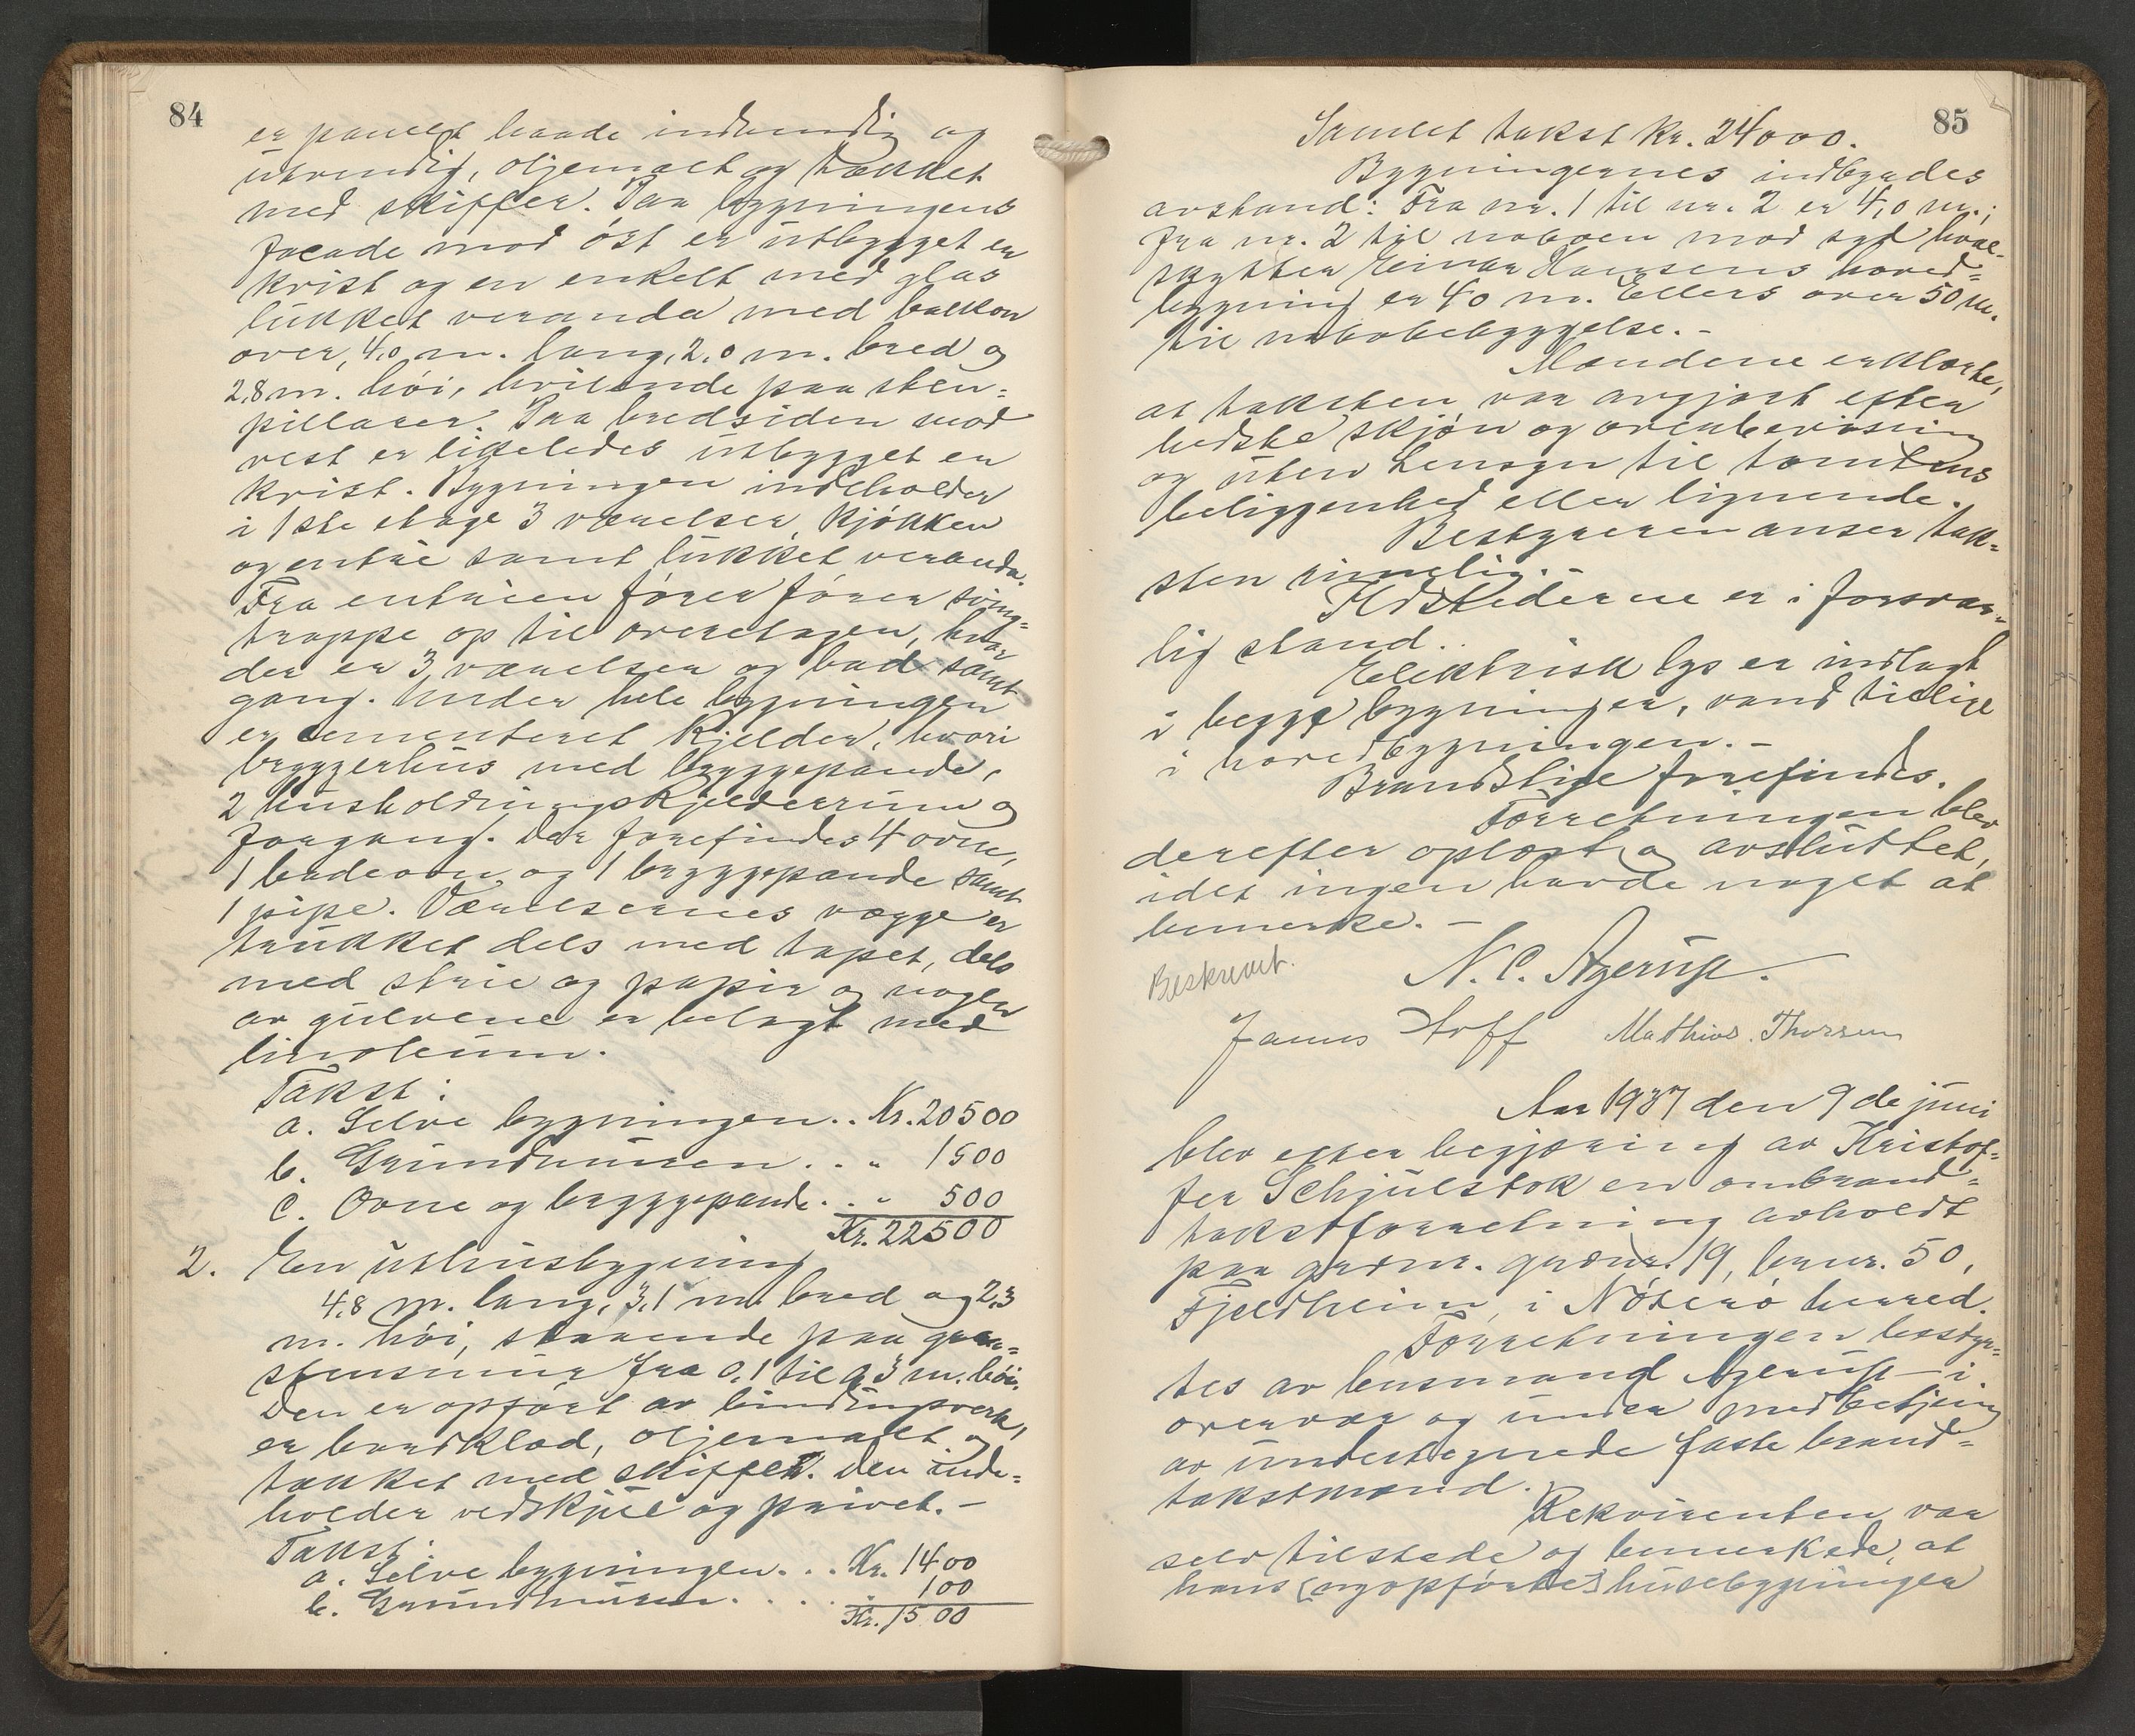 84
er panelt baade indvendig og
utvendig, oljemalt og tækket
med skiffer. Paa bygningens
facade mod øst er utbygget en
krist og en enkelt med glas
lukket veranda med balkon
over, 4,0 m. lang, 2,0 m. bred og
2,8 m. høi, hvilende paa sten=
pillarer. Paa bredsiden mod
vest er likeledes utbygget en
krist. Bygningen indeholder
i 1ste etage 3 værelser, kjøkken
og entrée samt lukket veranda.
Fra entréen fører fører sving=
trappe op til overetagen, hvor
der er 3 værelser og bad samt
gang. Under hele bygningen
er cementeret kjelder, hvori
bryggerhus med bryggepande,
2 husholdningskjelderrum og
forgang. Der forefindes 4 ovne,
1 badeovn og 1 bryggepande samt
1 pipe. Værelsernes vægge er
trukket dels med tapet, dels
med strie og papir og nogen
av gulvene er belagt med
linoleum.
Takst:
a. Selve bygningen.. Kr. 20500
b. Grundmuren... " 1500
c. Ovne og bryggepande.. " 500
Kr. 22500
2. En uthusbygning
4,8 m. lang, 3,1 m. bred og 2,3
m. høi, staaende paa graa=
stensmur fra 0,1 til 0,3 m. høi.
Den er opført av bindingsverk,
er bordklæd, oljemalt og
tækket med skiffer. Den inde=
holder vedskjul og privet. –
Takst:
a. Selve bygningen... Kr. 1400
b. Grundmuren..... " 100
Kr. 1500
85
Samlet takst kr. 24000.
Bygningernes indbyrdes
avstand: Fra nr. 1 til nr. 2 er 4,0 m.;
fra nr. 2 til naboen mod syd hval-
skytter Einar Hansens hoved=
bygning er 40 m. Ellers over 50 m.
til nabobebyggelse. –
Mændene erklærte,
at taksten var avgjort efter
bedste skjøn og overbevisning
og uten hensyn til tomtens
beliggenhed eller lignende.
Bestyreren anser tak=
sten rimelig. –
Ildstederne er i forsvar=
lig stand..
Elektrisk lys er indlagt
i begge bygninger, vand tillike
i hovedbygningen. –
Brandstige forefindes.
Forretningen blev
derefter oplæst og avsluttet,
idet ingen havde noget at
bemerke. –
Beskrevet.
N. C. Agerup.
Hoff Mathias Thorsen
Aar 1937 den 9de juni
blev efter begjæring av Kristof=
fer Schjulstok en ombrand=
takstforretning avholdt
paa gardnr. gardnr. 19, brunr. 50,
Fjeldheim, i Nøterø herred.
Forretningen bestyr=
tes av lensmand Agerup i
overvær og under medbetjening
av undertegnede faste brand=
takstmænd.
Rekvirenten var
selv tilstede og bemerkede, at
hans (nyopførte) husebygninger